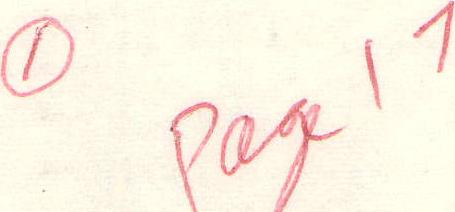 ①
Page 17